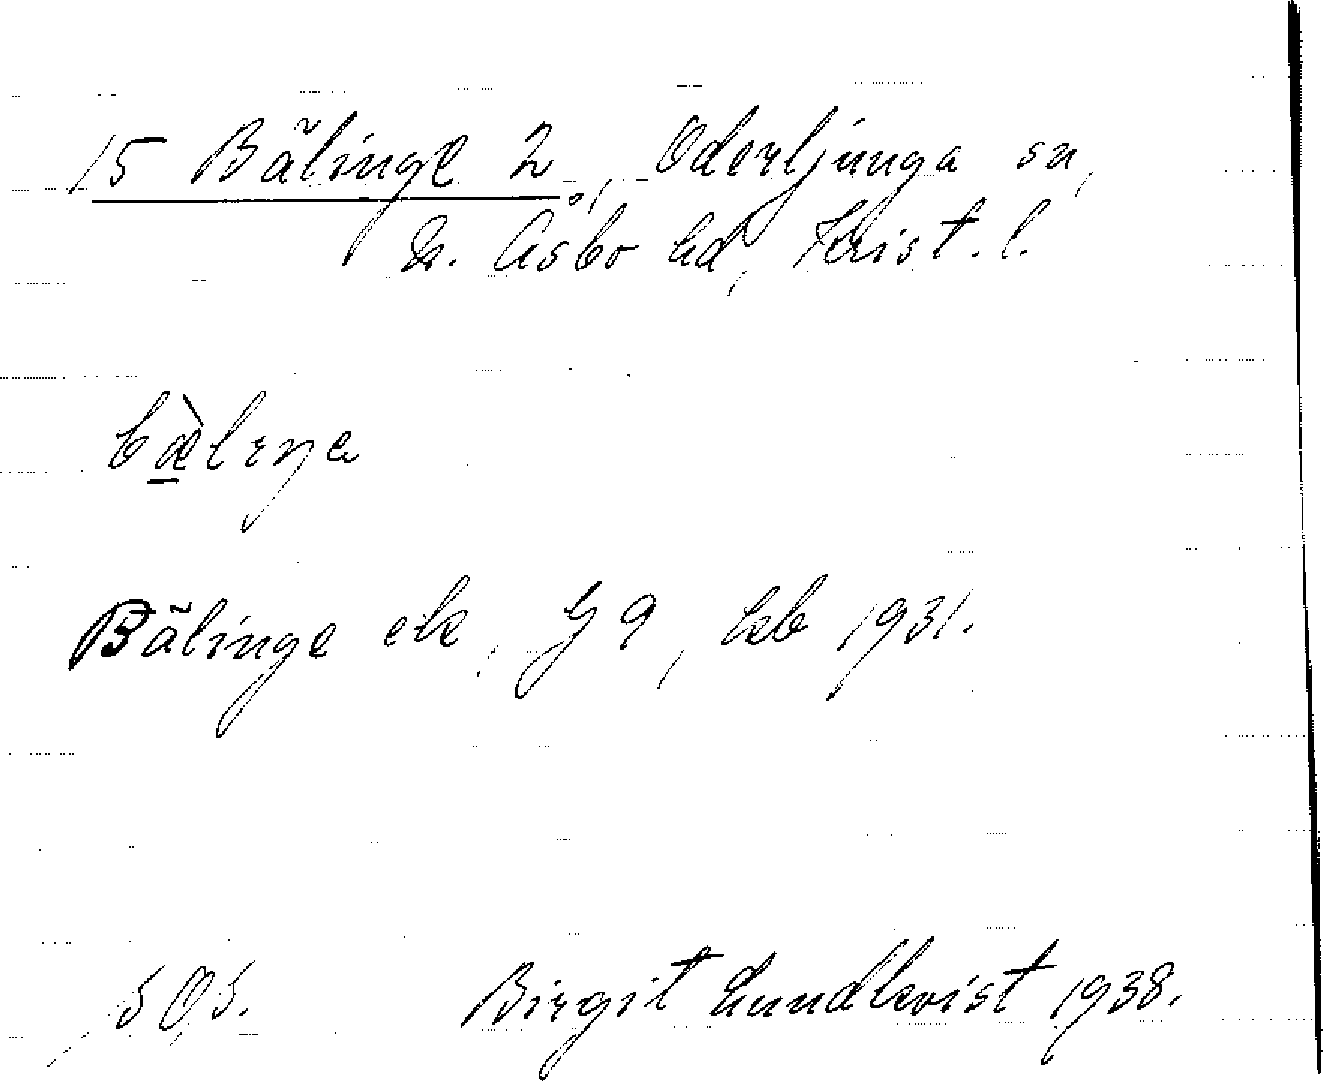 15 Bälinge 2, Oderljunga sn,
N. Åsbo hd, Krist. l.
bæ̠̀lıŋe
Bälinge ek, G 9, Lsb 1931.
Birgit Lundkvist 1938.